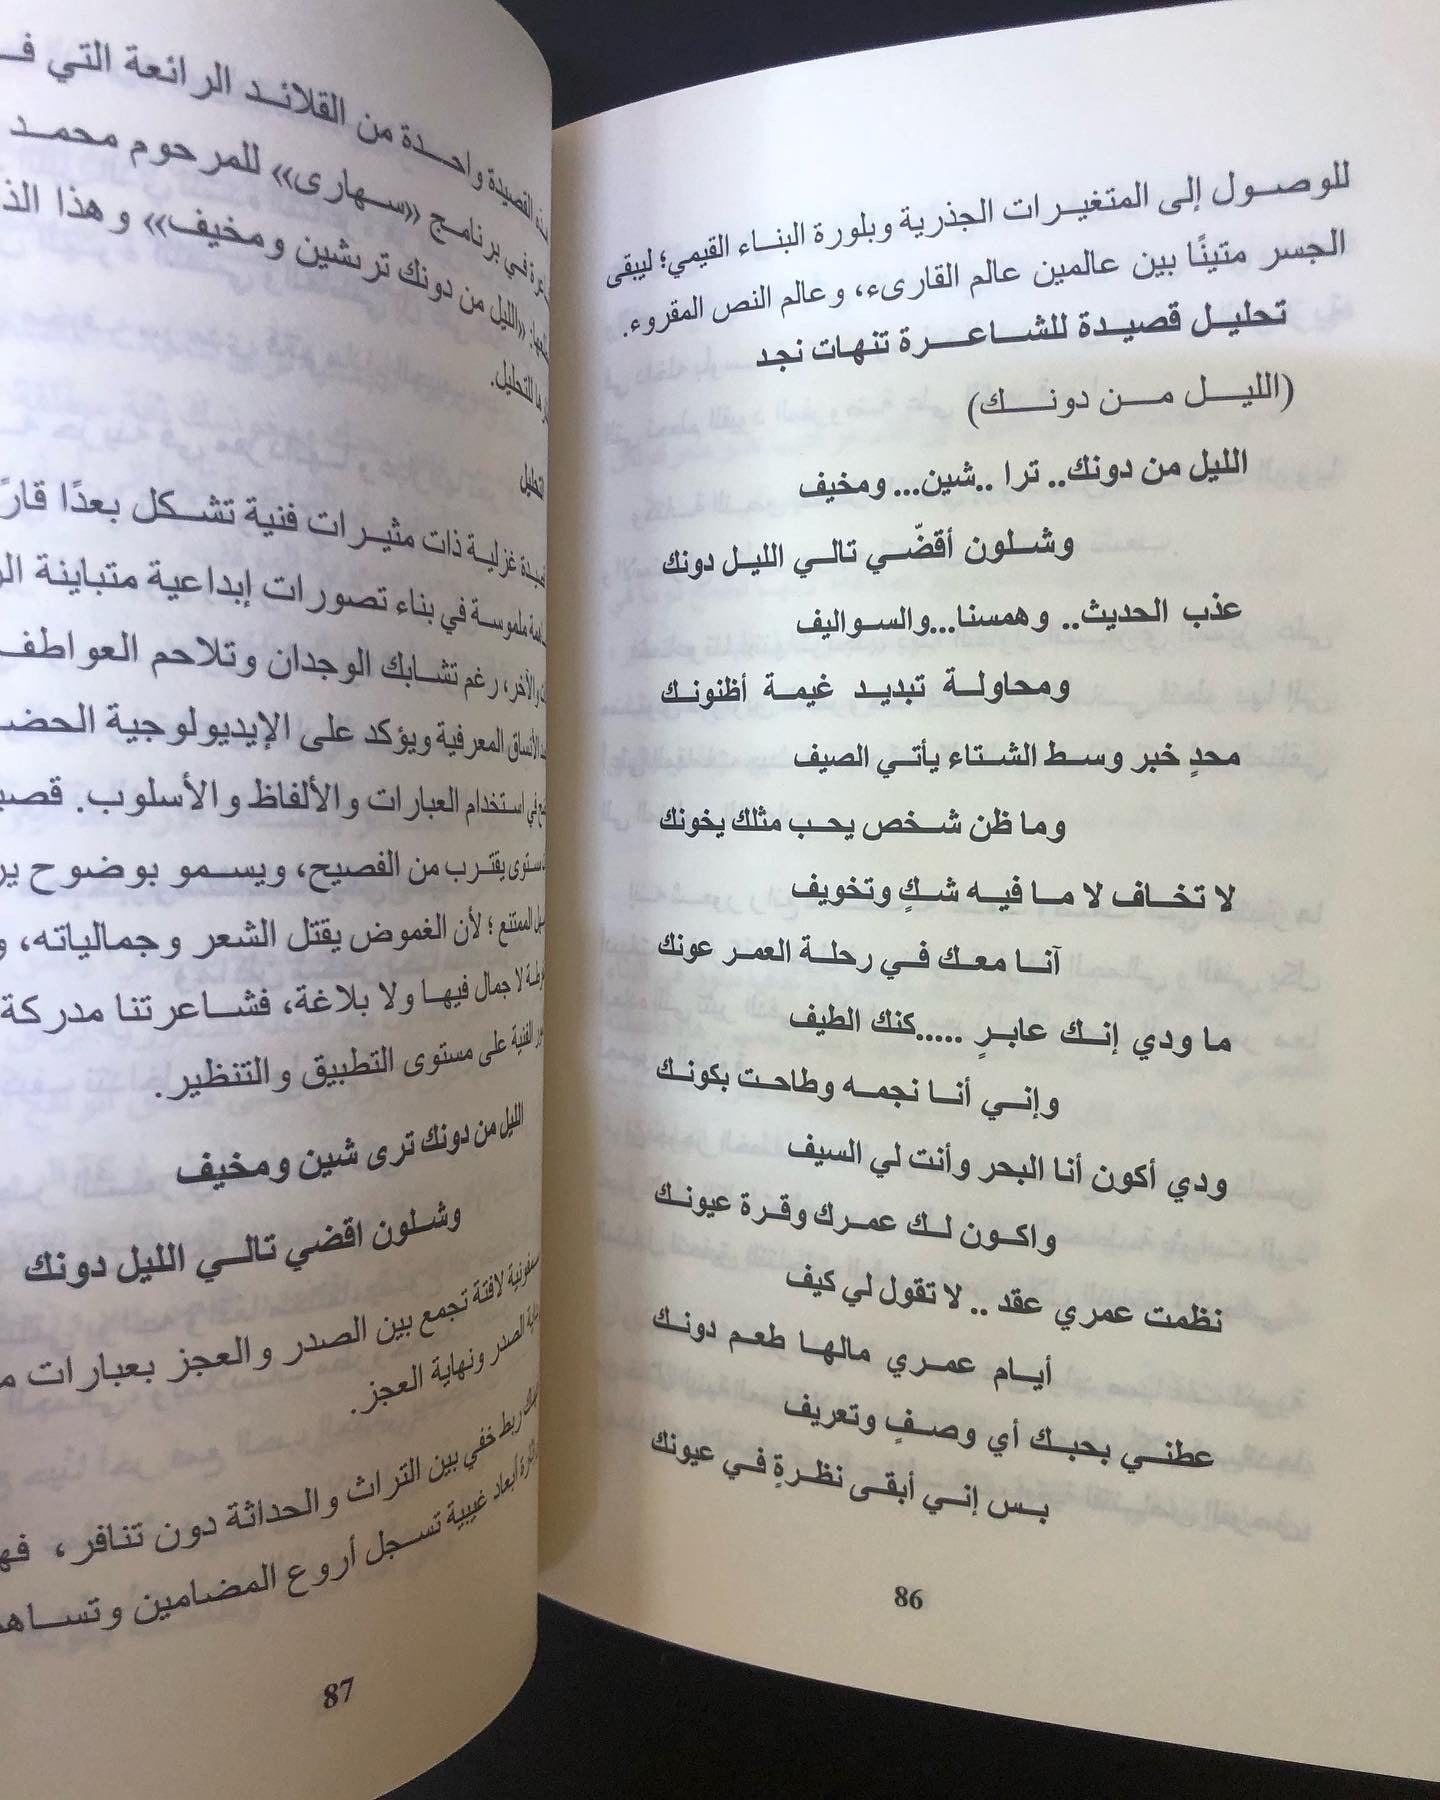 للوصول إلى المتغيرات الجذرية وبلورة البناء القيمي؛ ليبقى
الجسر متينًا بين عالمين عالم القارىء، وعالم النص المقروء.
تحليل قصيدة للشاعرة تنهات نجد
(الليل من دونك)
الليل من دونك.. ترا ..شين... ومخيف
وشلون أقضّي تالي الليل دونك
عذب الحديث.. وهمسنا...والسواليف
ومحاولة تبديد غيمة أظنونك
محدٍ خبر وسط الشتاء يأتي الصيف
وما ظن شخص يحب مثلك يخونك
لا تخاف لا ما فيه شكٍ وتخويف
آنا معك في رحلة العمر عونك
ما ودي إنك عابرٍ .....كنك الطيف
وإني أنا نجمه وطاحت بكونك
ودي أكون أنا البحر وأنت لي السيف
واكون لك عمرك وقرة عيونك
نظمت عمري عقد .. لا تقول لي كيف
أيام عمري مالها طعم دونك
عطني بحبك أي وصفٍ وتعريف
بس إني أبقى نظرةٍ في عيونك
86
القصيدة واحدة من القلائد الرائعة التي
في برنامج «سهارى» للمرحوم محمد
«الليل من دونك تر شين ومخيف» وهذا
للتحليل.
التحليل
غزلية ذات مثيرات فنية تشكل بعدًا
ملموسة في بناء تصورات إبداعية متباينة
والآخر، رغم تشابك الوجدان وتلاحم العواطف
الأنساق المعرفية ويؤكد على الإيديولوجية
في استخدام العبارات والألفاظ والأسلوب.
يقترب من الفصيح، ويسمو بوضوح
الممتنع؛ لأن الغموض يقتل الشعر وجمالياته،
لا جمال فيها ولا بلاغة، فشاعرتنا مدركة
الفنية على مستوى التطبيق والتنظير.
الليل من دونك ترى شين ومخيف
وشلون اقضي تالي الليل دونك
لافتة تجمع بين الصدر والعجز بعبارات
الصدر ونهاية العجز.
ربط خفي بين التراث والحداثة دون تنافر،
أبعاد غيبية تسجل أروع المضامين
87